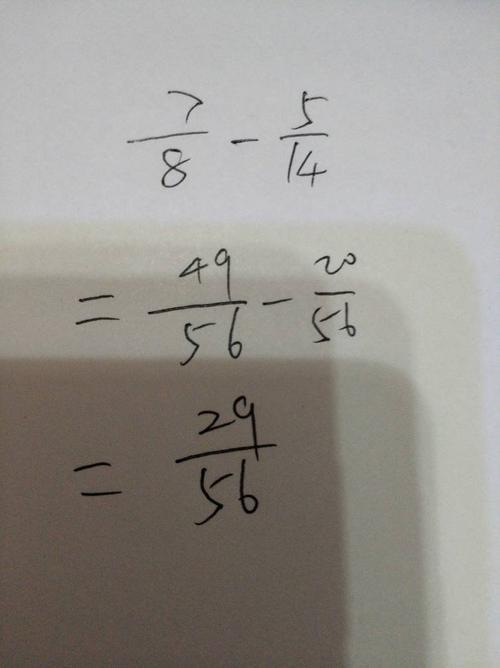 7/8 - 5/14
= 49/56 - 20/56
= 29/56